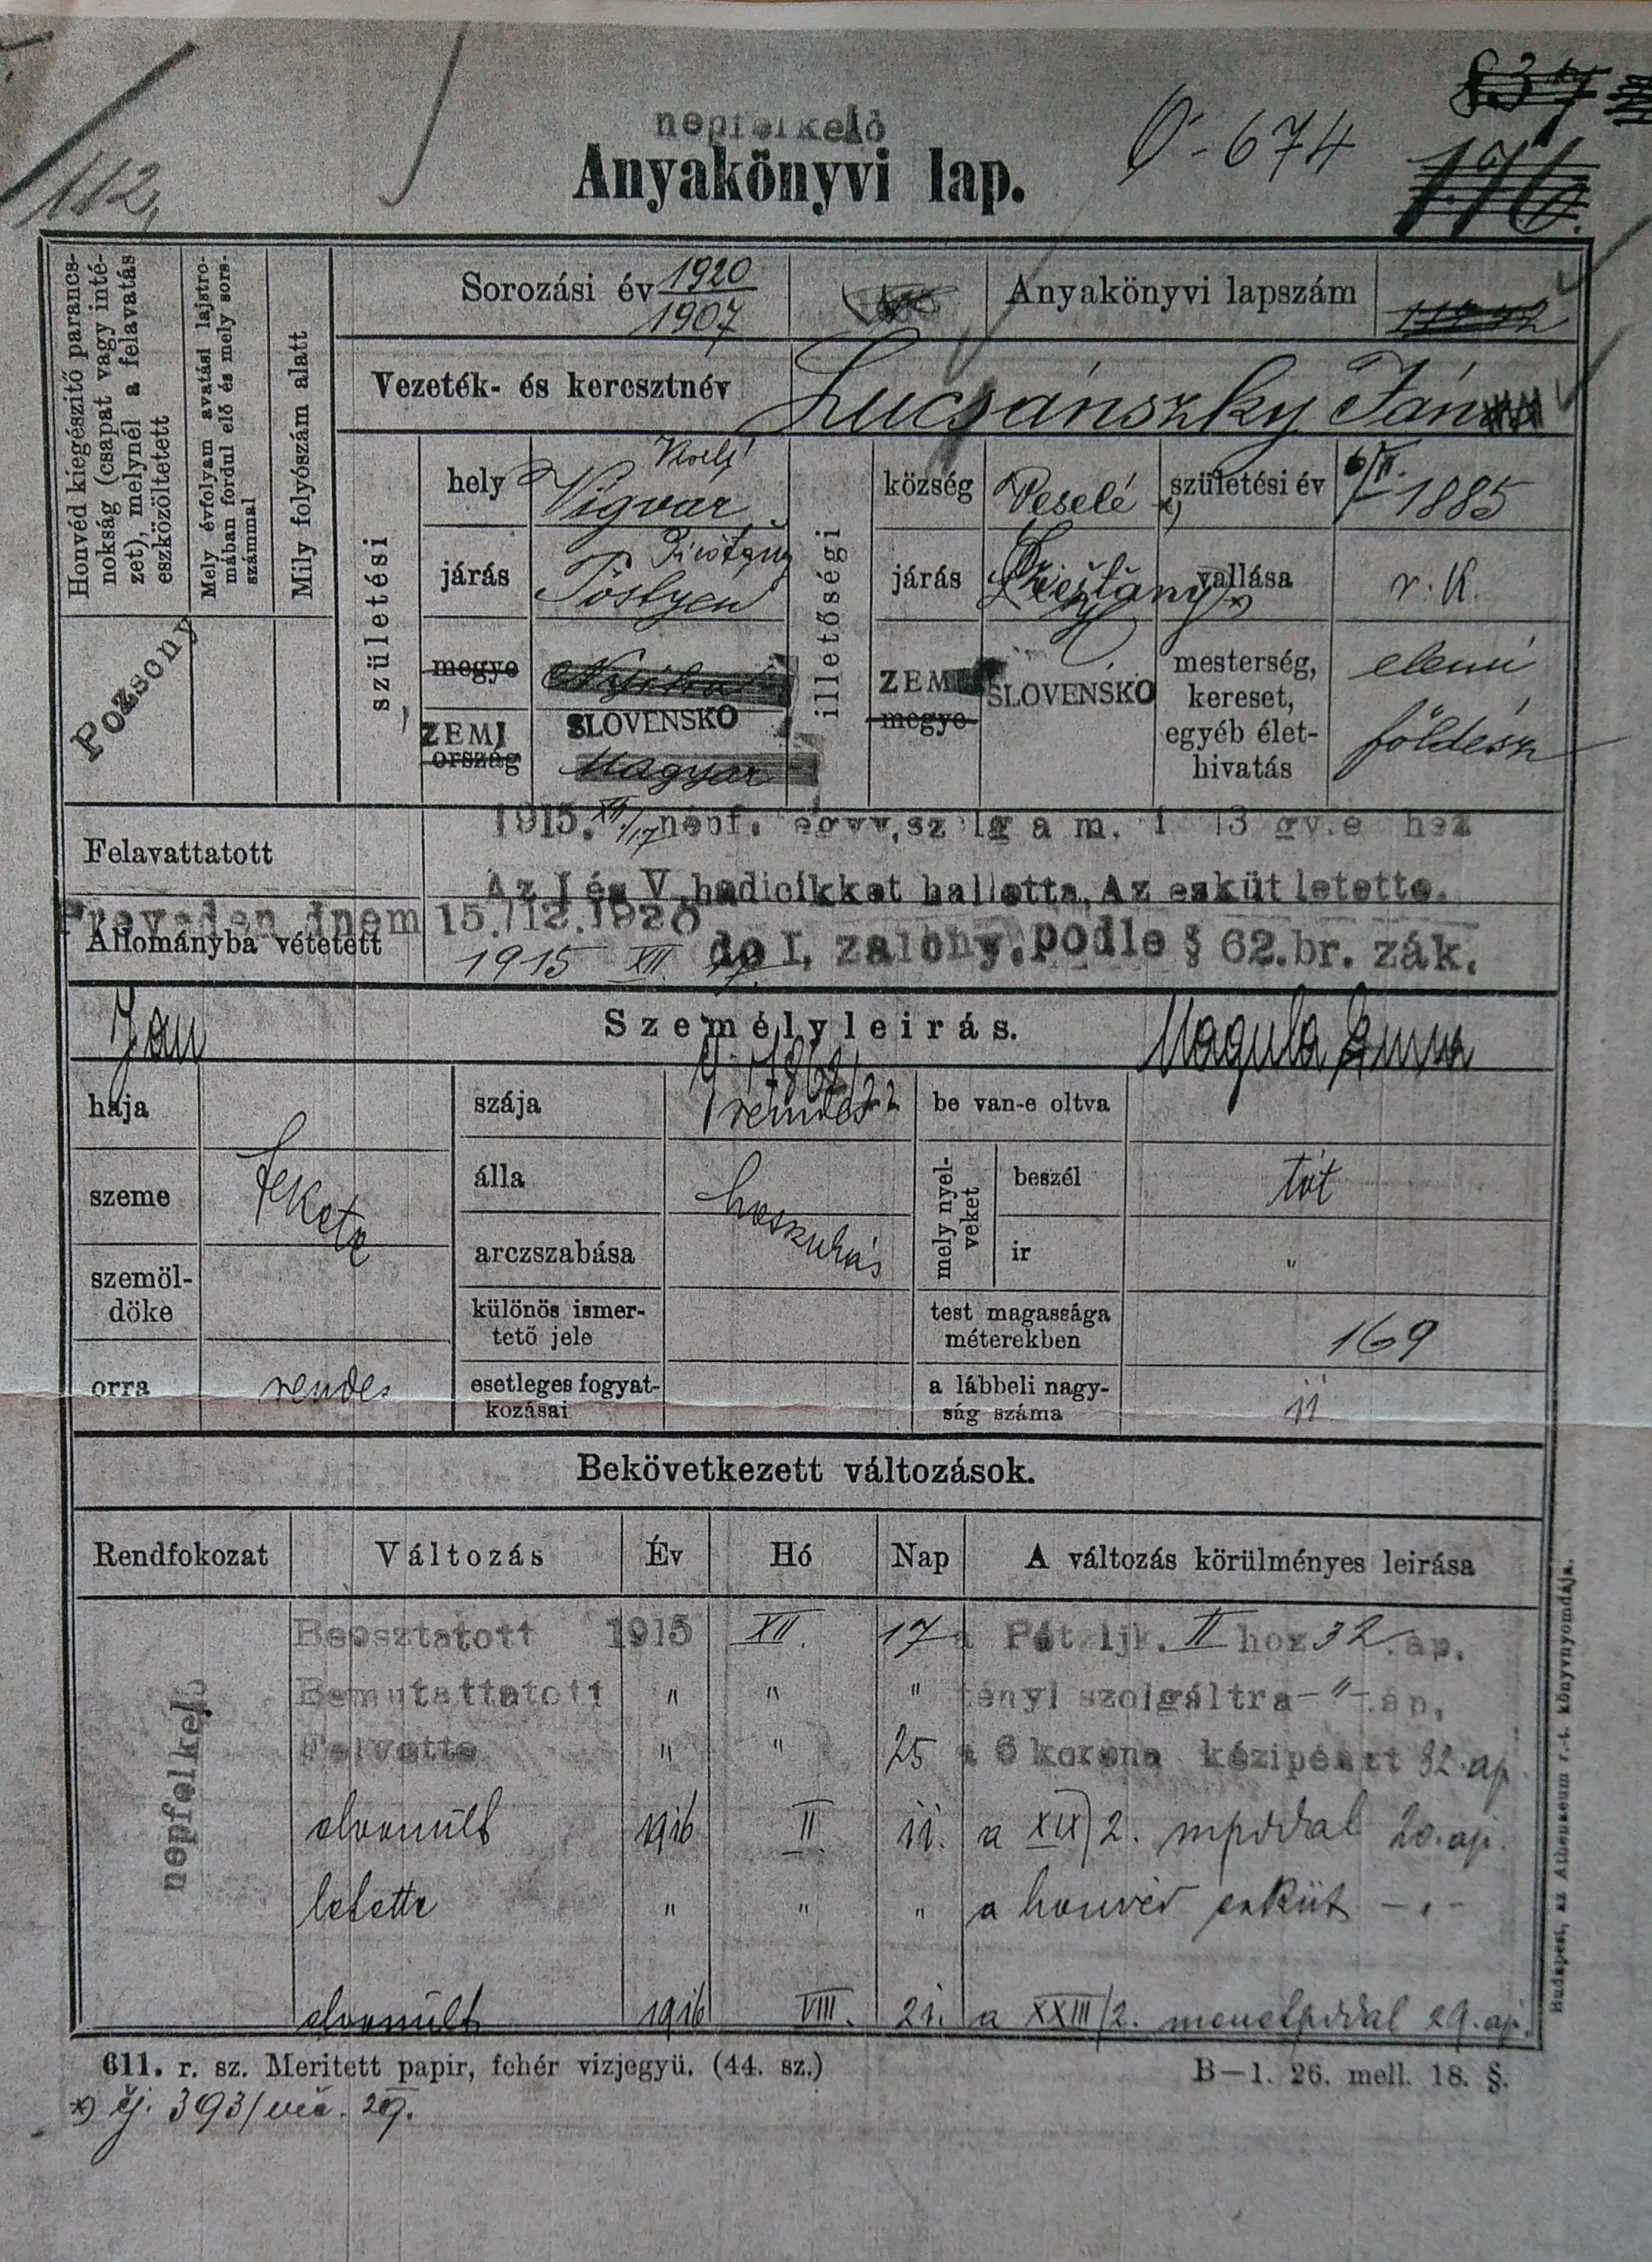 112,
népfelkelő
Anyakönyvi lap.
674
837
176.
Honvéd kiegészitő parancs-
nokság (csapat vagy inté-
zet), melynél a felavatás
eszközöltetett
Mely évfolyam avatási lajstro-
mában fordul elő és mely sors-
számmal
Mily folyószám alatt
Pozsony
Sorozási év 1920
1907
Anyakönyvi lapszám
Vezeték- és keresztnév Lucsánszky Ján
születési
hely Vigvár Veselý
járás Pöstyen Piešťany
megye
ZEMJ SLOVENSKO
ország Magyar
illetőségi
község Veselé *)
járás Piešťany *)
ZEMJ SLOVENSKO
megye
születési év 6/II. 1885
vallása r. k.
mesterség,
kereset,
egyéb élet-
hivatás
elemi
földész
Felavattatott
1915. XII/17 népf. egyv. szolg
Az I és V. hadicikket hallotta, Az esküt letette.
Preveden dnem 15./12.1920 do I. zálohy, podle § 62. br. zák.
Állományba vétetett 1915 XII. 17.
Jan
Személyleirás.
Magula
haja
szeme fekete
szemöl-
döke
orra rendes
szája rendes
álla
arczszabása hosszukás
különös ismer-
tető jele
esetleges fogyat-
kozásai
be van-e oltva
mely nyel-
veket
beszél tót
ir "
test magassága
méterekben 169
a lábbeli nagy-
ság száma 11
Bekövetkezett változások.
Rendfokozat Változás Év Hó Nap A változás körülményes leirása
népfelkelő
Beosztatott 1915 XII. 17 a Pót zlj. II hoz 32. ap.
Bemutattatott " " " tényl szolgáltra -"- ap.
Felvette " " 25 a 6 korona kézipénzt 32. ap.
elvonúlt 1916 II. 11. a XIX/2. 20. ap.
letette " " " a honvéd esküt -"-
elvonúlt 1916 VIII. 21. a XXIII/2. 29. ap.
Budapest, az Athenaeum r.-t. könyvnyomdája.
611. r. sz. Meritett papir, fehér vizjegyü. (44. sz.)
B—1. 26. mell. 18. §.
*) čj. 393/